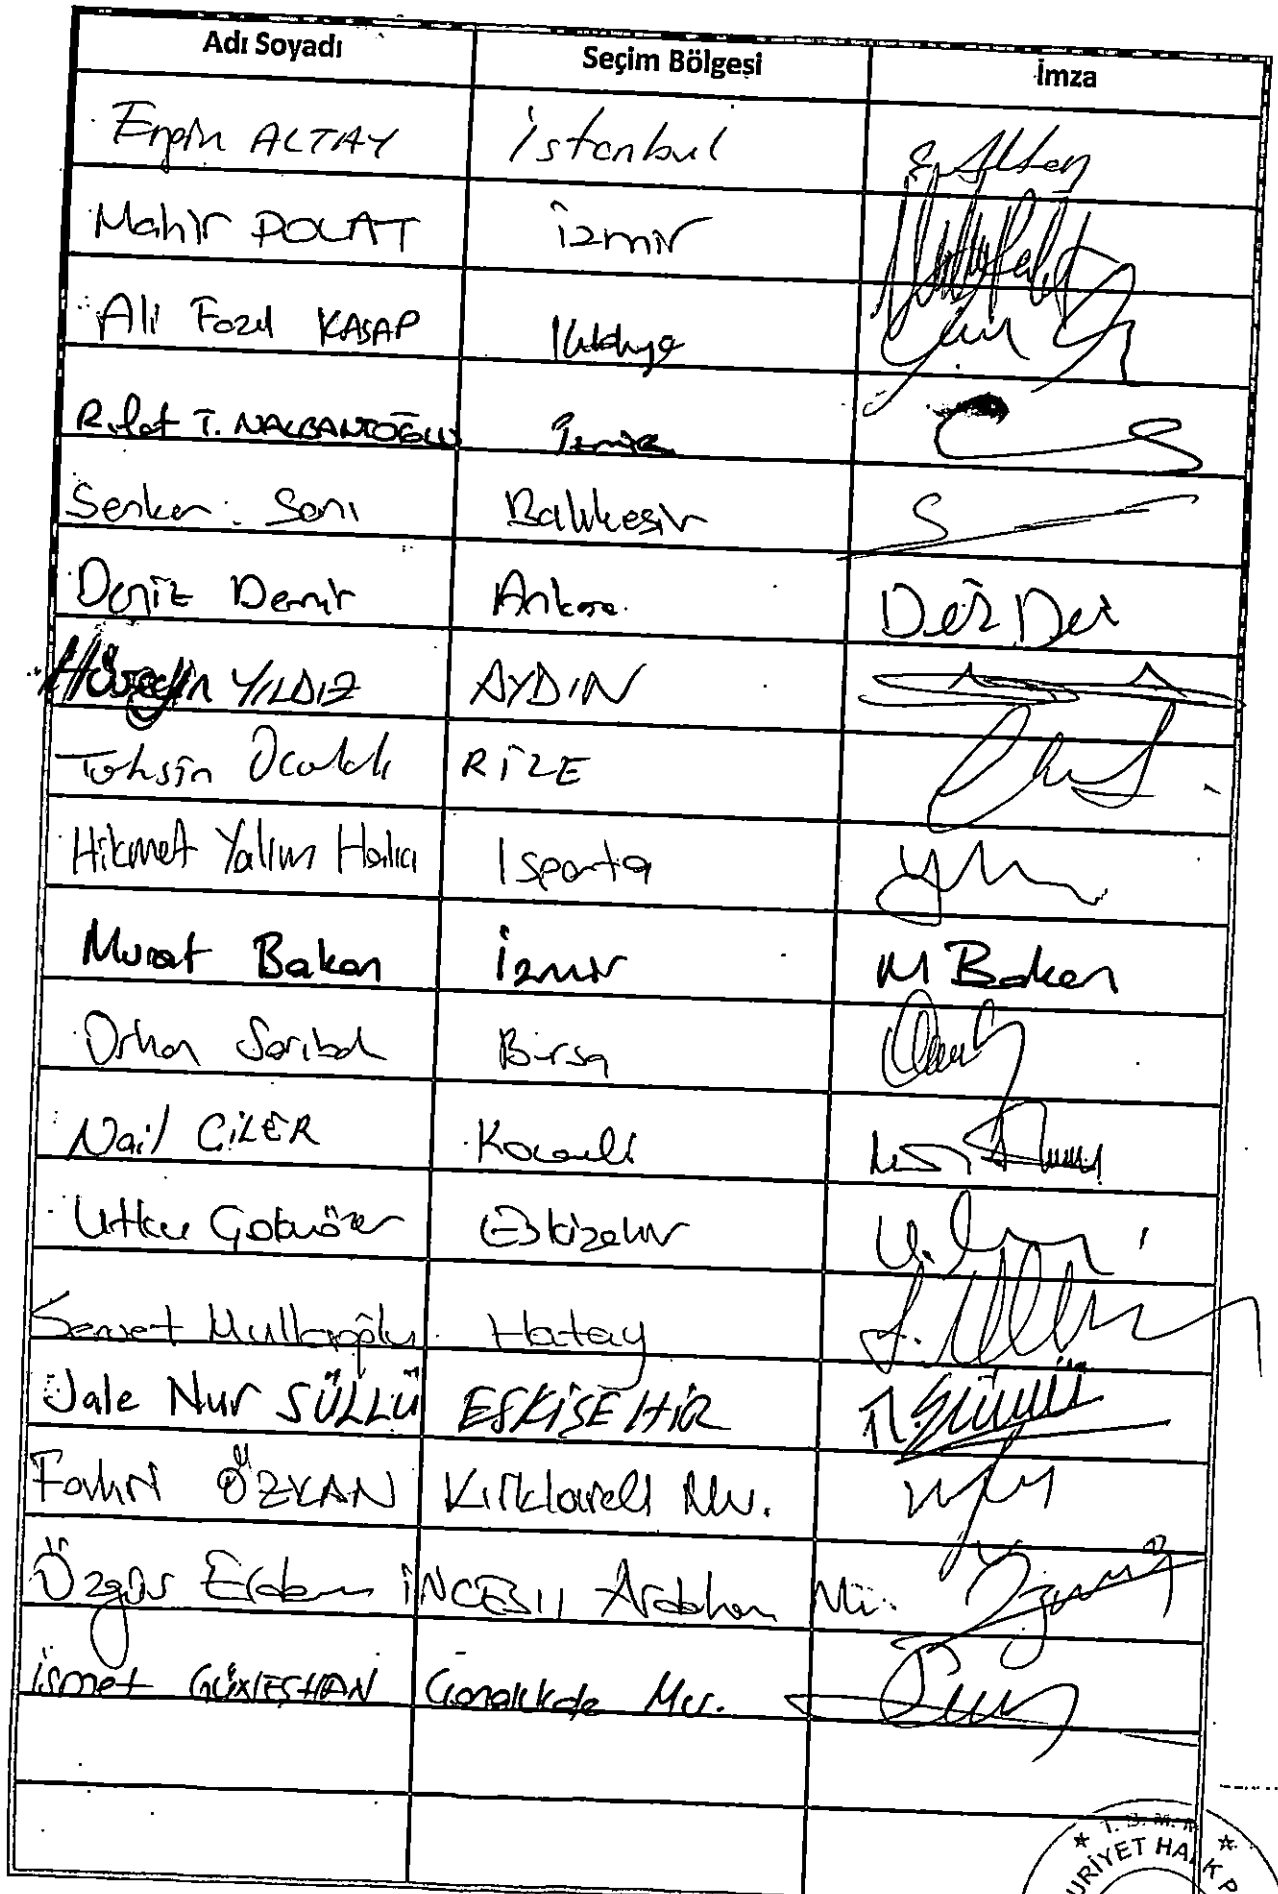 Adı Soyadı Seçim Bölgesi İmza
Engin ALTAY İstanbul E. Altay
Mahir POLAT İzmir
Ali Fazıl KASAP Kütahya
Rıfat T. NALBANTOĞLU İzmir
Serkan Sarı Balıkesir
Deniz Demir Ankara
Hüseyin YILDIZ AYDIN
Tahsin Ocaklı RİZE
Hikmet Yalım Halıcı Isparta
Murat Bakan İzmir M Bakan
Orhan Sarıbal Bursa
Nail ÇİLER Kocaeli
Utku Çakırözer Eskişehir
Servet Mullaoğlu Hatay
Jale Nur SÜLLÜ ESKİŞEHİR N. Süllü
Fahri ÖZKAN Kırklareli Mv.
Özgür Erdem İNCESU Ardahan Mv.
İsmet GÜNEŞHAN Çanakkale Mv.
T.B.M.M.